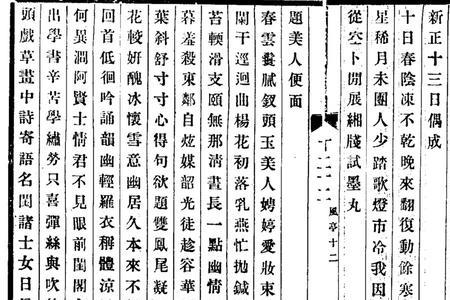 新正十三日偶成
十日春陰凍不乾晚來翻復動餘寒
星稀月未團人少踏歌燈市冷我因
從空卜開展緗牋試墨丸
風亭十二
題美人便面
春雲鬟膩釵頭玉美人娉婷愛妝束
闌干逕迴曲楊花初落乳燕忙拋鍼
苔輭滑支頤無那清晝長一點幽情
暮羞殺東鄰自炫媒韶光徒趁容華
葉斜舒寸寸心得句欲題雙鳳尾凝
花較妍醜冰懷雪意幽居久本來不
回首低徊吟誦韻幽輕羅衣稱體涼
何異澗阿賢士情君不見眼前閨閣
出學書辛苦學繡勞只喜彈絲與吹
頭戲草畫中詩寄語名閨諸士女日